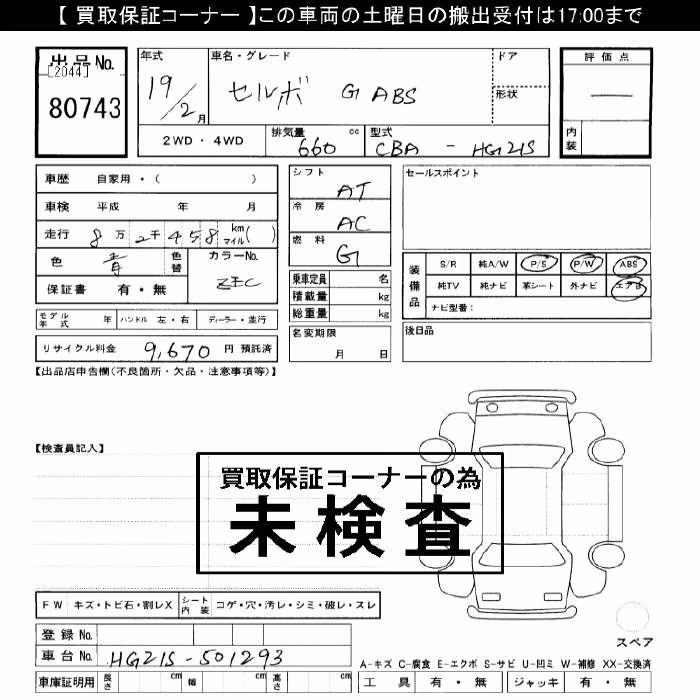 【 買取保証コーナー 】この車両の土曜日の搬出受付は17:00まで
出品No.
[2044]
80743
年式
19/2月
車名・グレード
セルボ G ABS
ドア
形状
評価点
—
内装
2WD・4WD
排気量 660 cc
型式 CBA - HG21S
車歴 自家用・( )
車検 平成 年 月
走行 8万2千458 km マイル( )
色 青 色替
カラーNo. ZEC
保証書 有・無
モデル年式 年 ハンドル 左・右 ディーラー・並行
リサイクル料金 9,670 円 預託済
シフト AT
冷房 AC
燃料 G
乗車定員 名
積載量 kg
総重量 kg
名変期限
月 日
セールスポイント
装備品
S/R 純A/W P/S P/W ABS
純TV 純ナビ 革シート 外ナビ エアB
ナビ型番：
後日品
【出品店申告欄(不良箇所・欠品・注意事項等)】
【検査員記入】
買取保証コーナーの為
未検査
FW キズ・トビ石・割レX シート内装 コゲ・穴・汚レ・シミ・破レ・スレ
登録No.
車台No. HG21S-501293
車庫証明用 長さ cm 幅 cm 高さ cm
スペア
A-キズ C-腐食 E-エクボ S-サビ U-凹ミ W-補修 XX-交換済
工具 有・無 ジャッキ 有・無